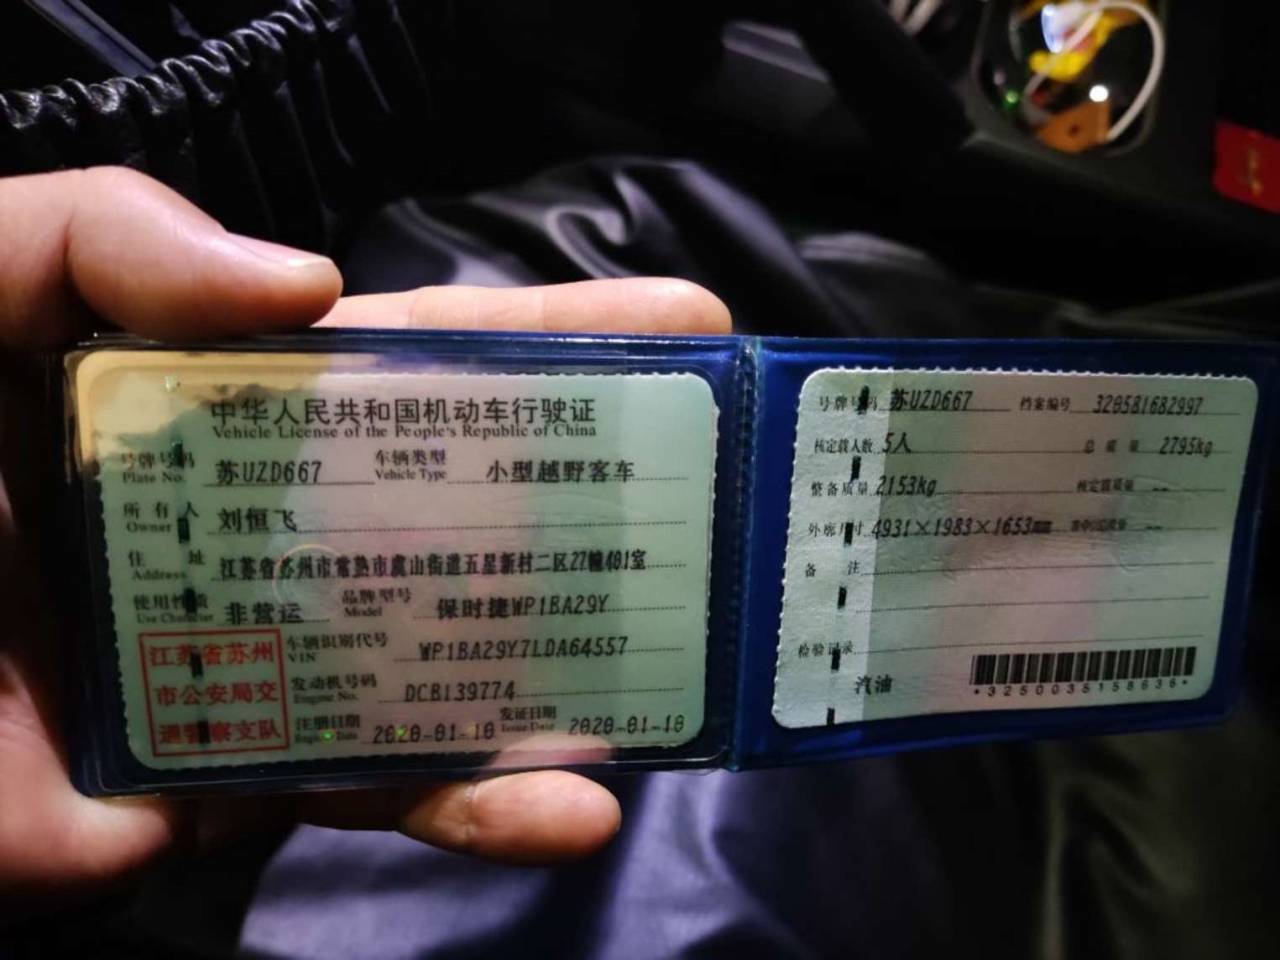 中华人民共和国机动车行驶证
Vehicle License of the People's Republic of China
号牌号码 苏UZD667 车辆类型 小型越野客车
Plate No. Vehicle Type
所有人 刘恒飞
Owner
住址 江苏省苏州市常熟市虞山街道五星新村二区27幢401室
Address
使用性质 非营运 品牌型号 保时捷WP1BA29Y
Use Character Model
江苏省苏州 车辆识别代号 WP1BA29Y7LDA64557
VIN
市公安局交 发动机号码 DCB139774
Engine No.
通警察支队 注册日期 2020-01-10 发证日期 2020-01-10
Register Date Issue Date
号牌号码 苏UZD667 档案编号 320581682997
核定载人数 5人 总质量 2795kg
整备质量 2153kg 核定载质量 --
外廓尺寸 4931×1983×1653mm 准牵引总质量 --
备注
检验记录
汽油
*3250035158636*